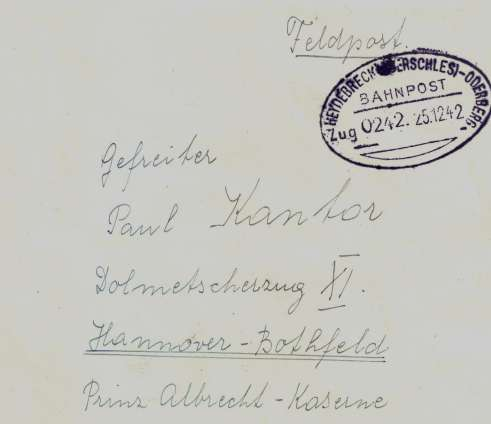 Feldpost.
HEYDEBRECK (OBERSCHLES)-ODERBERG
BAHNPOST
Zug 0242. 25.1242
Gefreiter
Paul Kantor
Dolmetscherzug XI.
Hannover-Bothfeld
Prinz Albrecht-Kaserne